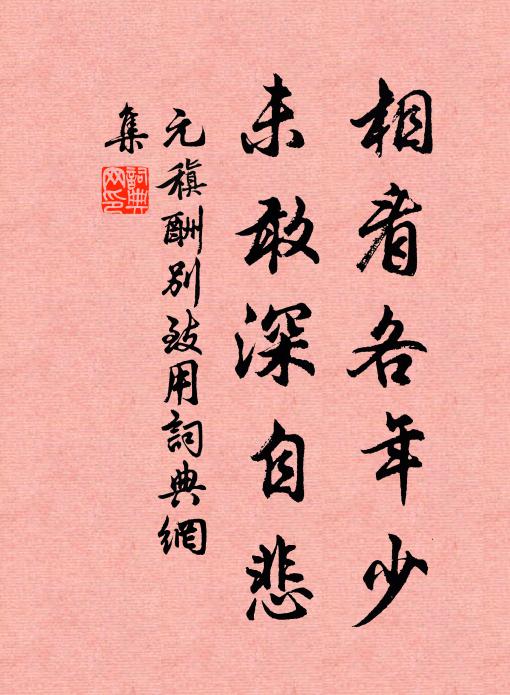 相看各年少
未敢深自悲
元稹酬别致用詞典網
集
詞典網印